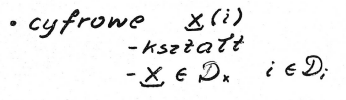 • cyfrowe x(i)
- kształt
- x ∈ Dx i ∈ Di